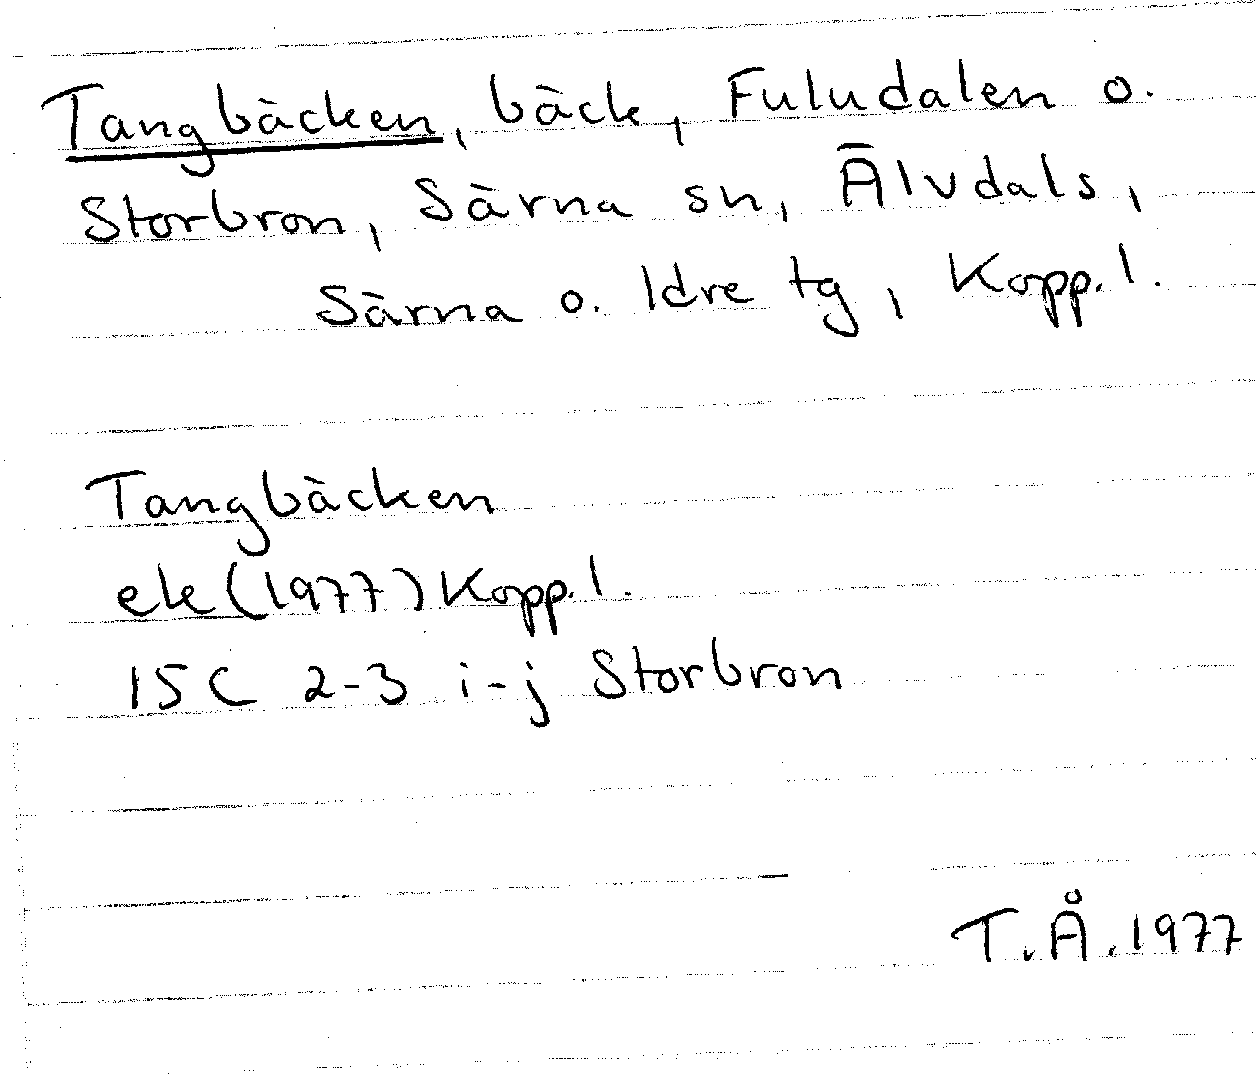 Tangbäcken, bäck, Fuludalen o.
Storbron, Särna sn, Älvdals,
Särna o. Idre tg, Kopp. l.
Tangbäcken
ek (1977) Kopp. l.
15C 2-3 i-j Storbron
T.Å. 1977